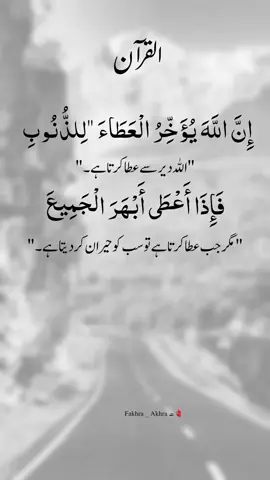 القرآن
إِنَّ اللَّهَ يُؤَخِّرُ الْعَطَاءَ "لِلذُّنُوبِ
"اللہ دیر سے عطا کرتا ہے۔"
فَإِذَا أَعْطَى أَبْهَرَ الْجَمِيعَ
"مگر جب عطا کرتا ہے تو سب کو حیران کر دیتا ہے۔"
Fakhra _ Akhra